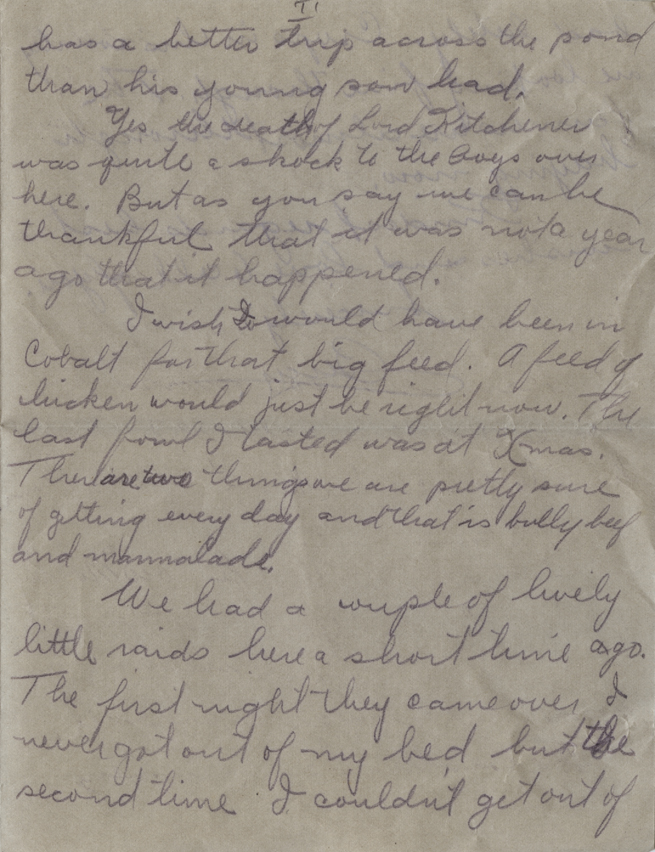 has a better trip across the pond
than his young son had.
Yes the death of Lord Kitchener
was quite a shock to the boys over
here. But as you say we can be
thankful that it was not a year
ago that it happened.
I wish I would have been in
Cobalt for that big feed. A feed of
chicken would just be right now. The
last fowl I tasted was at Xmas.
There are two things we are pretty sure
of getting every day and that is bully beef
and marmalade.
We had a couple of lively
little raids here a short time ago.
The first night they came over I
never got out of my bed but the
second time I couldn't get out of